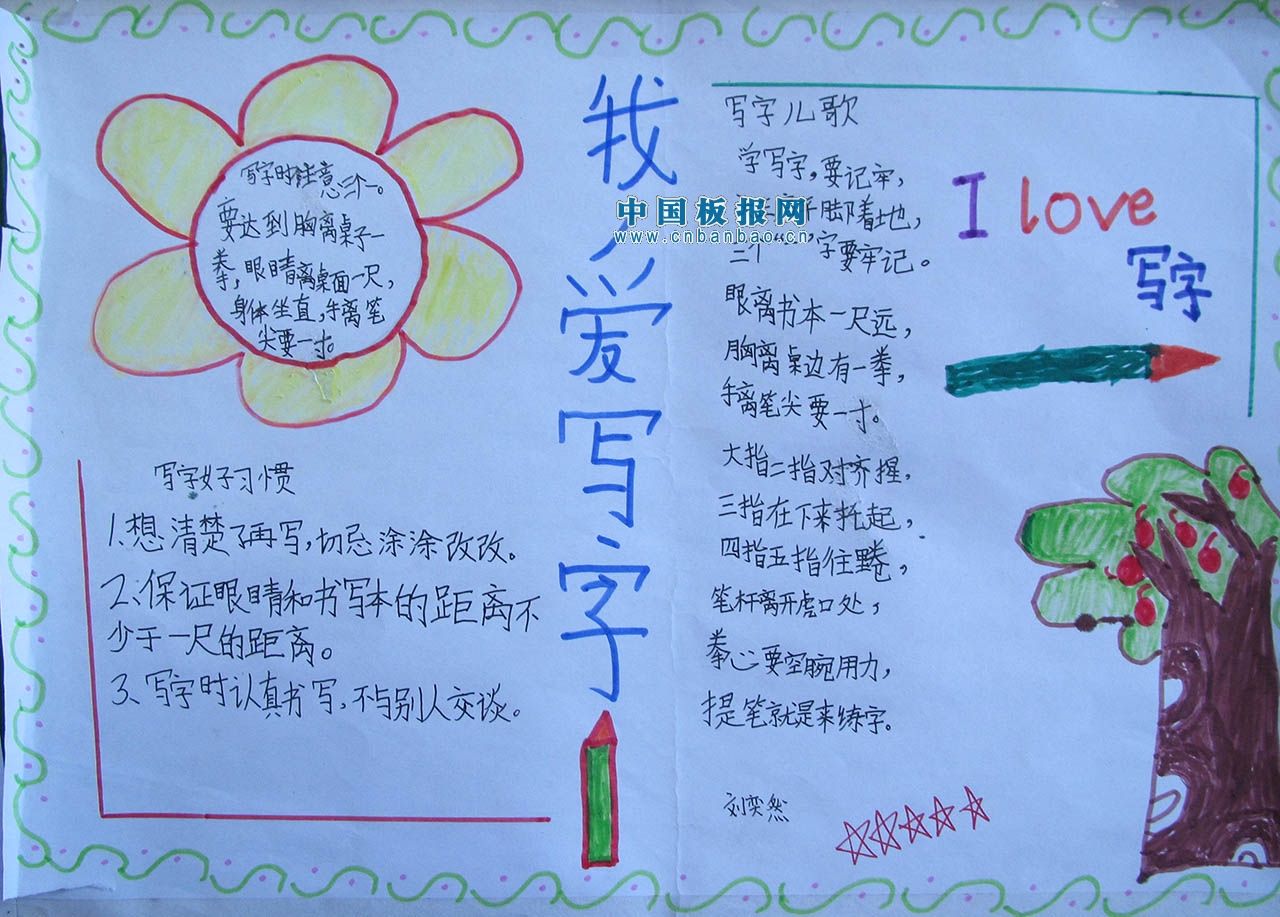 我爱写字
中国板报网
www.cnbanbao.cn
写字时注意三个一。
要达到胸离桌子一
拳,眼睛离桌面一尺,
身体坐直,手离笔
尖要一寸。
写字好习惯
1.想清楚了再写,切忌涂涂改改。
2、保证眼睛和书写本的距离不
少于一尺的距离。
3、写字时认真书写,不与别人交谈。
写字儿歌
学写字,要记牢,
脚着地,
三个“一”字要牢记。
眼离书本一尺远,
胸离桌边有一拳,
手离笔尖要一寸。
大指二指对齐握,
三指在下来托起,
四指五指往里卷,
笔杆离开虎口处,
拳心要空腕用力,
提笔就是来练字。
刘奕然
I love
写字